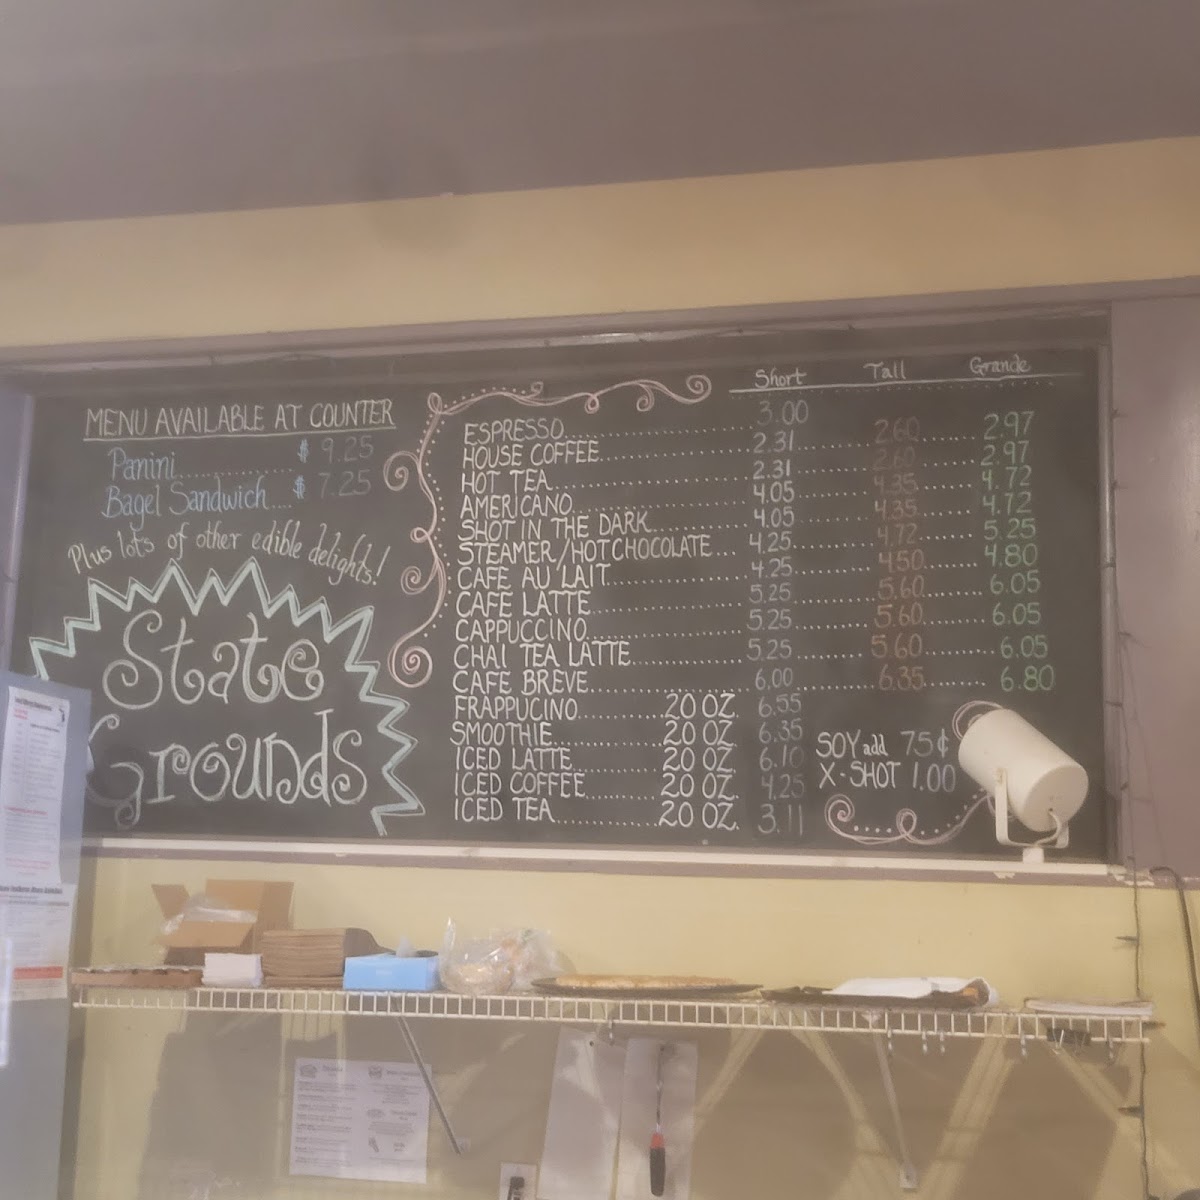 MENU AVAILABLE AT COUNTER
Panini.............. $ 9.25
Bagel Sandwich.... $ 7.25
Plus lots of other edible delights!
State
Grounds
Short Tall Grande
ESPRESSO 3.00
HOUSE COFFEE 2.31 2.60 2.97
HOT TEA 2.31 2.60 2.97
AMERICANO 4.05 4.35 4.72
SHOT IN THE DARK 4.05 4.35 4.72
STEAMER/HOT CHOCOLATE 4.25 4.72 5.25
CAFE AU LAIT 4.25 4.50 4.80
CAFE LATTE 5.25 5.60 6.05
CAPPUCCINO 5.25 5.60 6.05
CHAI TEA LATTE 5.25 5.60 6.05
CAFE BREVE 6.00 6.35 6.80
FRAPPUCINO 20 OZ. 6.55
SMOOTHIE 20 OZ. 6.35
ICED LATTE 20 OZ. 6.10
ICED COFFEE 20 OZ. 4.25
ICED TEA 20 OZ. 3.11
SOY add 75¢
X-SHOT 1.00